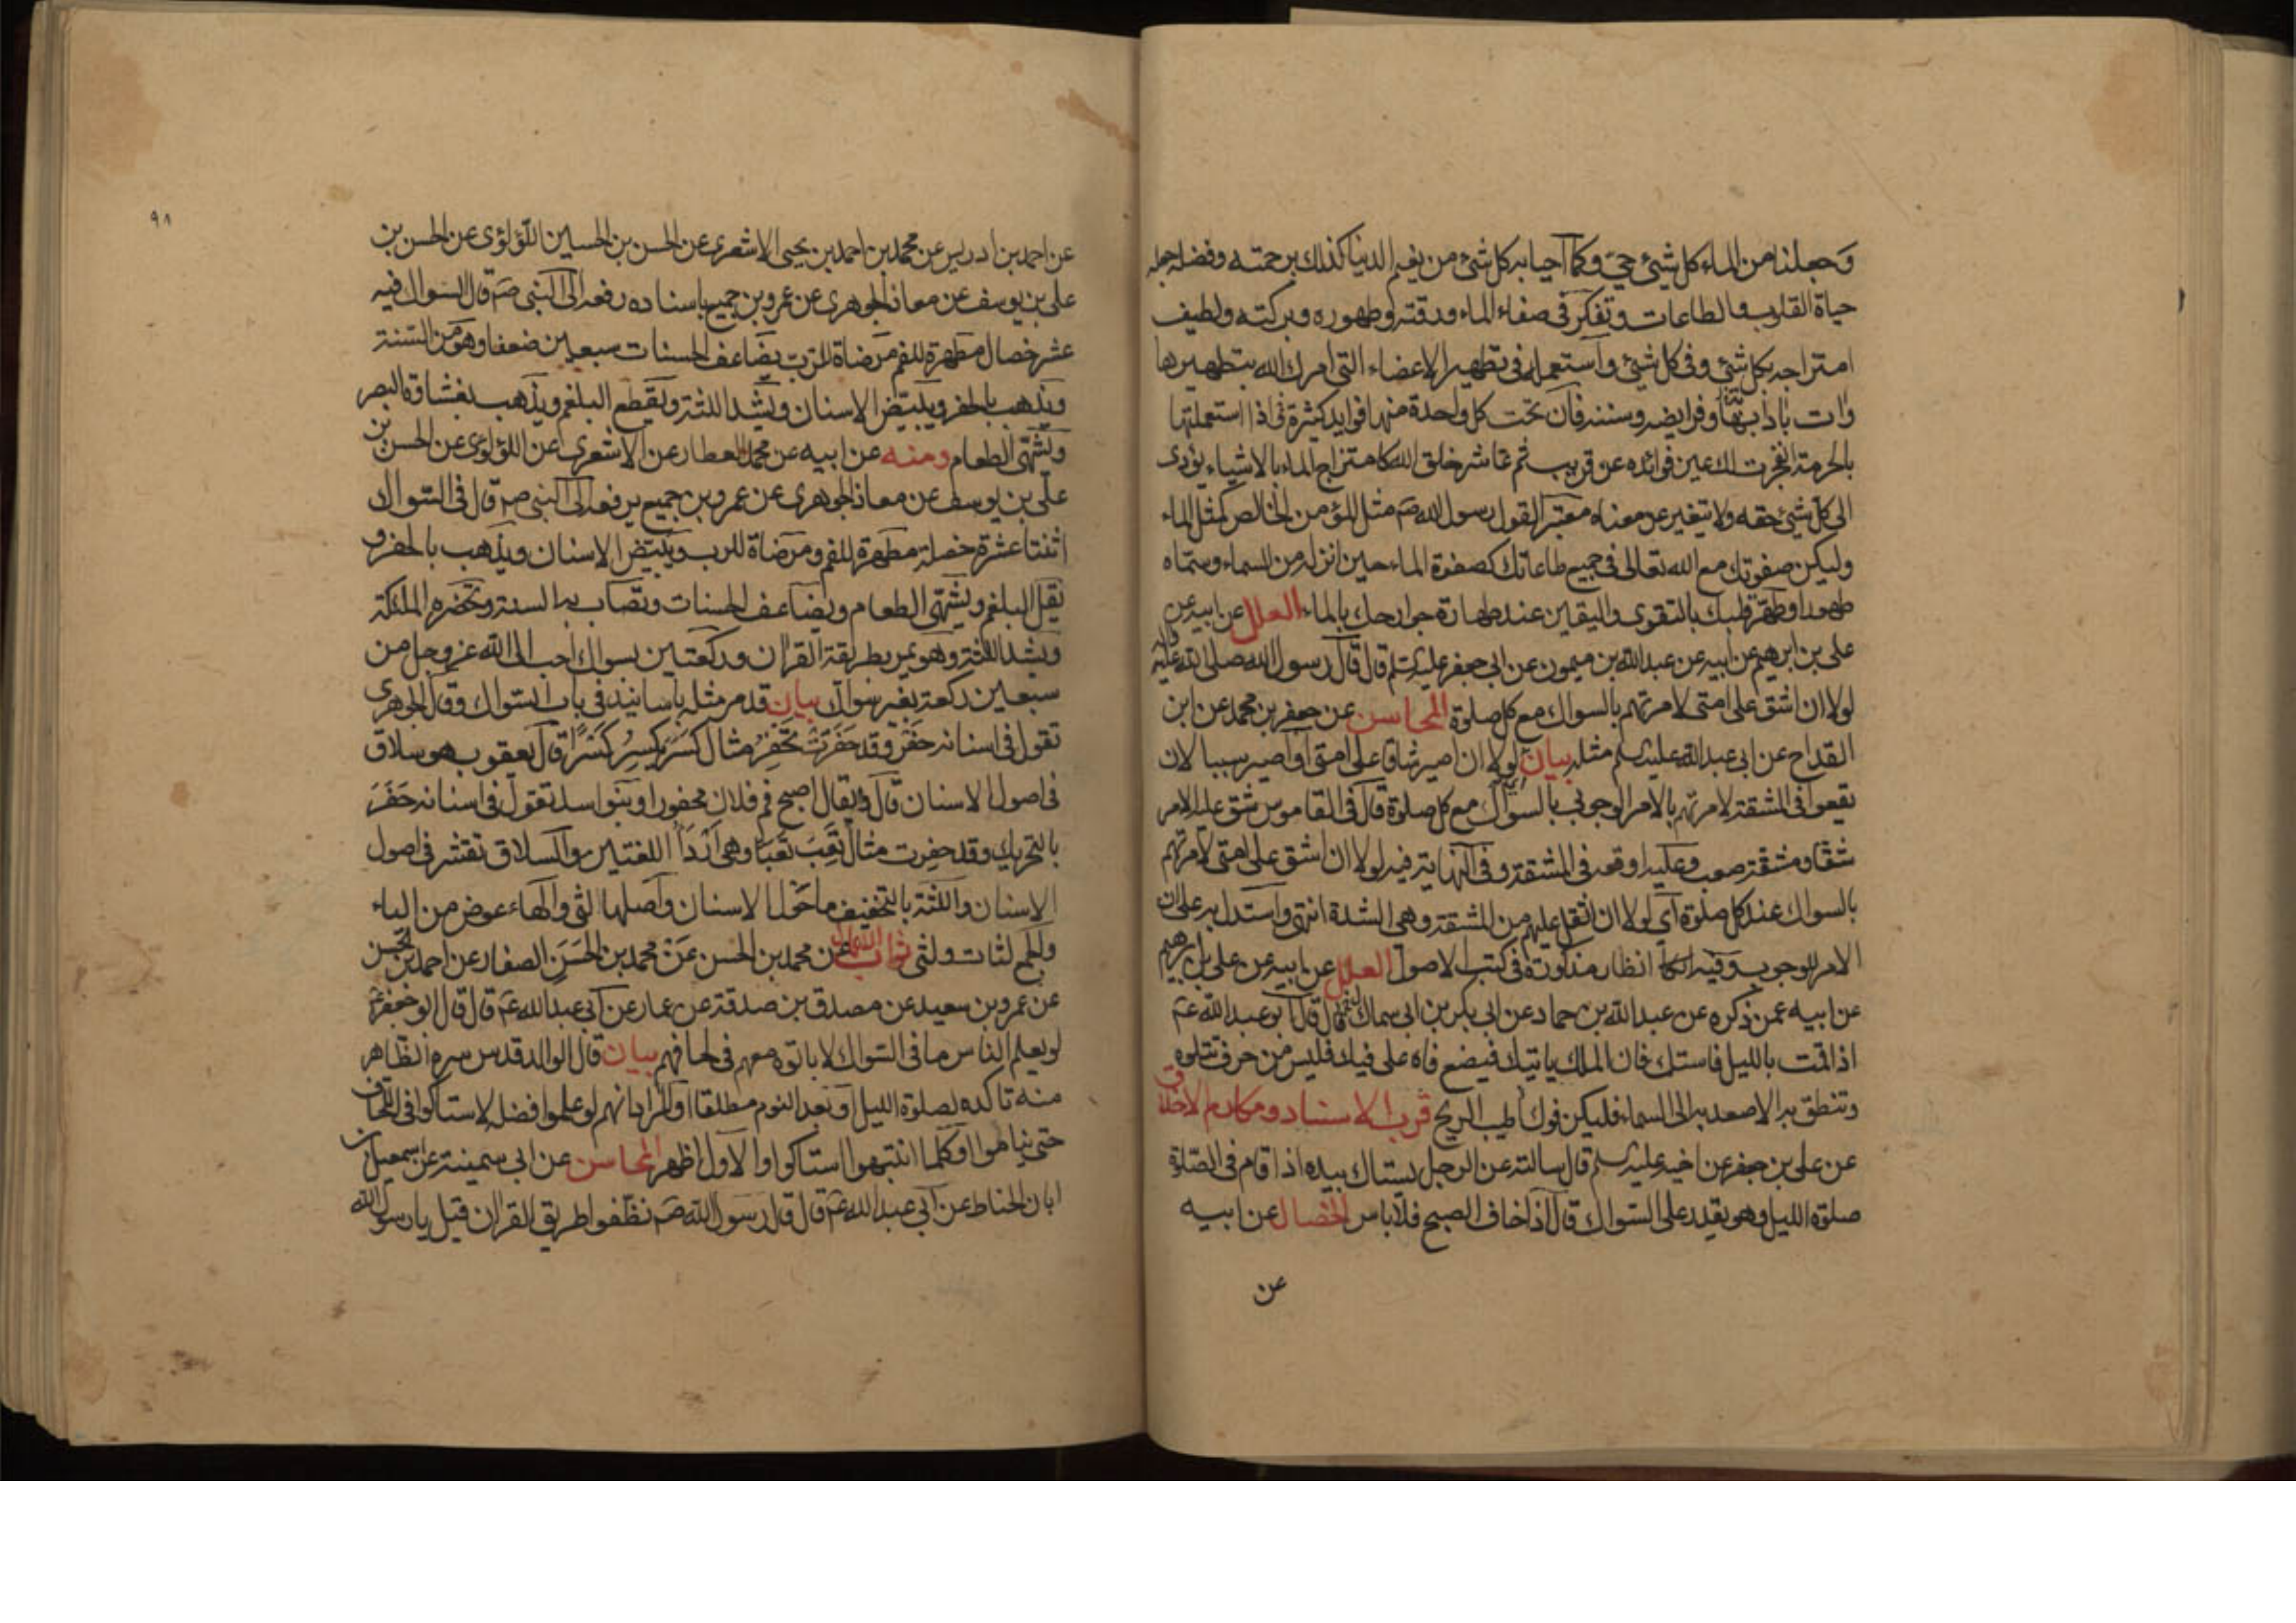 وجعلنا من الماء كل شيئ حي وكما احيا به كل شئ من نعيم الدنيا كذلك برحمته وفضله جعله
حياة القلوب والطاعات وتفكر في صفاء الماء ورقته وطهوره وبركته ولطيف
امتزاجه بكل شئ وفي كل شئ واستعمله في تطهير الاعضاء التي امرك الله بتطهيرها
وات بادابها وفرايضه وسننه فان تحت كل واحدة منها فوايد كثيرة فاذا استعملتها
بالحرمة انفجرت لك عين فوائده عن قريب ثم عاشر خلق الله كامتزاج الماء بالاشياء يؤدى
الى كل شئ حقه ولا يتغير عن معناه معتبرا لقول رسول الله صم مثل المؤمن الخالص كمثل الماء
وليكن صفوتك مع الله تعالى في جميع طاعاتك كصفوة الماء حين انزله من السماء وسماه
طهورا وطهر قلبك بالتقوى واليقين عند طهارة جوارحك بالماء العلل عن ابيه عن
علي بن ابرهيم عن ابيه عن عبد الله بن ميمون عن ابي جعفر عليه السلم قال قال رسول الله صلى الله عليه واله
لولا ان اشق على امتى لامرتهم بالسواك مع كل صلوة المحاسن عن جعفر بن محمد عن ابن
القداح عن ابي عبد الله عليه السلم مثله بيان لولا ان اصير شاقا على امتى او اصير سببا لان
يقعوا في المشقة لامرتهم بالامر الوجوبي بالسواك مع كل صلوة قال في القاموس شق عليه الامر
شقا ومشقة صعب وعليه اوقعه في المشقة وفي النهاية فيه لولا ان اشق على امتى لامرتهم
بالسواك عند كل صلوة اي لولا ان اثقل عليهم من المشقة وهي الشدة انتهى واستدل به على ان
الامر للوجوب وفيه انظار مذكورة في كتب الاصول العلل عن ابيه عن علي بن ابرهيم
عن ابيه عمن ذكره عن عبد الله بن حماد عن ابي بكر بن ابي سماك قال قال ابو عبد الله عم
اذا قمت بالليل فاستك فان الملك ياتيك فيضع فاه على فيك فليس من حرف تتلوه
وتنطق به الا صعد به الى السماء فليكن فوك طيب الريح قرب الاسناد ومكارم الاخلاق
عن علي بن جعفر عن اخيه عليه السلم قال سالته عن الرجل يستاك بيده اذا قام في الصلوة
صلوة الليل وهو يقدر على السواك قال اذا خاف الصبح فلا باس الخصال عن ابيه
عن
٩٨
عن احمد بن ادريس عن محمد بن احمد بن يحيى الاشعرى عن الحسن بن الحسين اللؤلؤى عن الحسن بن
علي بن يوسف عن معاذ الجوهرى عن عمرو بن جميع باسناده رفعه الى النبى صم قال السواك فيه
عشر خصال مطهرة للفم مرضاة للرب يضاعف الحسنات سبعين ضعفا وهو من السنة
ويذهب بالحفر ويبيض الاسنان ويشد اللثة ويقطع البلغم ويذهب بغشاوة البصر
ويشهى الطعام ومنه عن ابيه عن محمد العطار عن الاشعرى عن اللؤلؤى عن الحسن بن
على بن يوسف عن معاذ الجوهرى عن عمرو بن جميع يرفعه الى النبى صم قال في السواك
اثنتا عشرة خصلة مطهرة للفم ومرضاة للرب ويبيض الاسنان ويذهب بالحفر و
يقل البلغم ويشهى الطعام ويضاعف الحسنات وتصاب به السنة وتحضره الملئكة
ويشد اللثة وهو يمر بطريقة القران وركعتين بسواك احب الى الله عز وجل من
سبعين ركعة بغير سواك بيان قد مر مثله باسانيد في باب السواك وقال الجوهرى
تقول في اسنانه حفر وقد حفرت تحفر مثال كسر يكسر كسرا قال يعقوب هو سلاق
في اصول الاسنان قال ويقال اصبح فم فلان محفورا وبنو اسد تقول في اسنانه حفر
بالتحريك وقد حفرت مثال تعب تعبا وهي اردا اللغتين والسلاق تقشر في اصول
الاسنان واللثة بالتخفيف ما حول الاسنان واصلها لثى والهاء عوض من الياء
والجمع لثات ولثى ثواب الاعمال عن محمد بن الحسن عن محمد بن الحسن الصفار عن احمد بن الحسن
عن عمرو بن سعيد عن مصدق بن صدقة عن عمار عن ابي عبد الله عم قال قال ابو جعفر عم
لو يعلم الناس ما في السواك لاباتوه معهم في لحافهم بيان قال الوالد قدس سره الظاهر
منه تاكده لصلوة الليل او بعد النوم مطلقا او المراد انهم لو علموا فضله لاستاكوا في اللحاف
حتى يناموا او كلما انتبهوا استاكوا والاول اظهر المحاسن عن ابي سمينة عن اسمعيل بن
ابان الحناط عن ابي عبد الله عم قال قال رسول الله صم نظفوا طريق القران قيل يا رسول الله